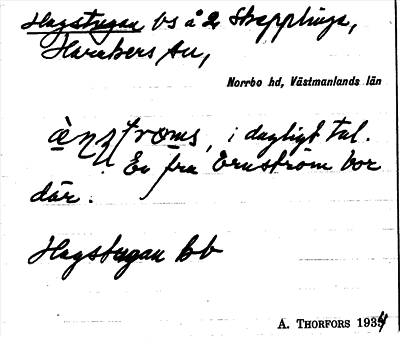 Hagstugan bs å 2 Skepplinge,
Harakers sn,
Norrbo hd, Västmanlands län
i dagligt tal.
En fru Ernström bor
där.
Hagstugan bb
A. THORFORS 1934